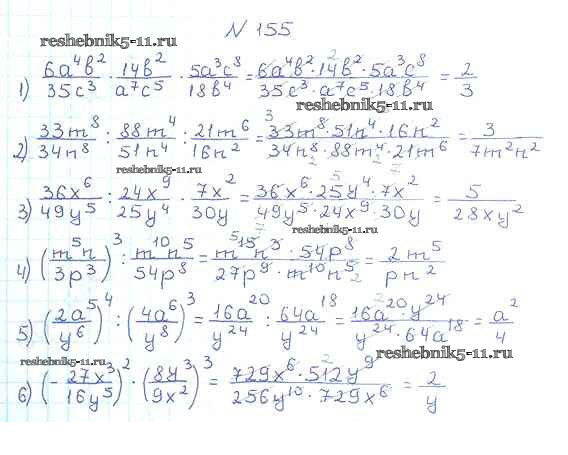 N 155
reshebnik5-11.ru
1) 6a⁴b²/35c³ · 14b²/a⁷c⁵ · 5a³c⁸/18b⁴ = 6a⁴b² · 14b² · 5a³c⁸/35c³ · a⁷c⁵ · 18b⁴ = 2/3
reshebnik5-11.ru
2) 33m⁸/34n⁸ : 88m⁴/51n⁴ : 21m⁶/16n² = 33m⁸ · 51n⁴ · 16n²/34n⁸ · 88m⁴ · 21m⁶ = 3/7m²n²
reshebnik5-11.ru
3) 36x⁶/49y⁵ : 24x⁹/25y⁴ · 7x²/30y = 36x⁶ · 25y⁴ · 7x²/49y⁵ · 24x⁹ · 30y = 5/28xy²
reshebnik5-11.ru
4) (m⁵n/3p³)³ : m¹⁰n⁵/54p⁸ = m¹⁵n³ · 54p⁸/27p⁹ · m¹⁰n⁵ = 2m⁵/pn²
reshebnik5-11.ru
5) (2a⁵/y⁶)⁴ : (4a⁶/y⁸)³ = 16a²⁰/y²⁴ : 64a¹⁸/y²⁴ = 16a²⁰ · y²⁴/y²⁴ · 64a¹⁸ = a²/4
reshebnik5-11.ru
reshebnik5-11.ru
6) (-27x³/16y⁵)² · (8y³/9x²)³ = 729x⁶ · 512y⁹/256y¹⁰ · 729x⁶ = 2/y